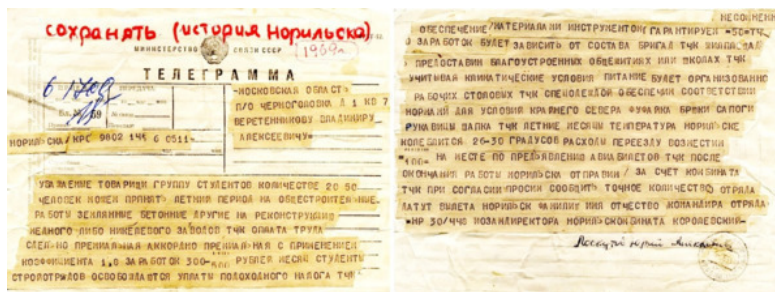 сохранять (история Норильска)
МИНИСТЕРСТВО СВЯЗИ СССР
(1969г.)
ТЕЛЕГРАММА
МОСКОВСКАЯ ОБЛАСТЬ
П/О ЧЕРНОГОЛОВКА Д 1 КВ 7
ВЕРЕТЕННИКОВУ ВЛАДИМИРУ
АЛЕКСЕЕВИЧУ=
НОРИЛЬСКА/КРС 9802 144 6 0511=
УВАЖАЕМЫЕ ТОВАРИЩИ ГРУППУ СТУДЕНТОВ КОЛИЧЕСТВЕ 20 50
ЧЕЛОВЕК МОЖЕМ ПРИНЯТЬ ЛЕТНИЙ ПЕРИОД НА ОБЩЕСТРОИТЕЛЬНЫЕ
РАБОТЫ ЗЕМЛЯНЫЕ БЕТОННЫЕ ДРУГИЕ НА РЕКОНСТРУКЦИЮ
МЕДНОГО ЛИБО НИКЕЛЕВОГО ЗАВОДОВ ТЧК ОПЛАТА ТРУДА
СДЕЛЬНО ПРЕМИАЛЬНАЯ АККОРДНО ПРЕМИАЛЬНАЯ С ПРИМЕНЕНИЕМ
КОЭФФИЦИЕНТА ЗАРАБОТОК 300- РУБЛЕЙ МЕСЯЦ СТУДЕНТЫ
СТРОЙОТРЯДОВ ОСВОБОЖДАЮТСЯ УПЛАТЫ ПОДОХОДНОГО НАЛОГА ТЧК
ОБЕСПЕЧЕНИЕ МАТЕРИАЛАМИ ИНСТРУМЕНТОМ ГАРАНТИРУЕМ =50=ТЧК
ЗАРАБОТОК БУДЕТ ЗАВИСИТЬ ОТ СОСТАВА БРИГАД ТЧК
ПРЕДОСТАВИМ БЛАГОУСТРОЕННЫХ ОБЩЕЖИТИЯХ ИЛИ ШКОЛАХ ТЧК
УЧИТЫВАЯ КЛИМАТИЧЕСКИЕ УСЛОВИЯ ПИТАНИЕ БУДЕТ ОРГАНИЗОВАНО
РАБОЧИХ СТОЛОВЫХ ТЧК СПЕЦОДЕЖДОЙ ОБЕСПЕЧИМ СООТВЕТСТВИИ
НОРМАМИ ДЛЯ УСЛОВИЙ КРАЙНЕГО СЕВЕРА ФУФАЙКА БРЮКИ САПОГИ
РУКАВИЦЫ ШАПКА ТЧК ЛЕТНИЕ МЕСЯЦЫ ТЕМПЕРАТУРА НОРИЛЬСКЕ
КОЛЕБЛЕТСЯ 26-30 ГРАДУСОВ РАСХОДЫ ПЕРЕЕЗДУ ВОЗМЕСТИМ
=100= НА МЕСТЕ ПО ПРЕДЪЯВЛЕНИЮ АВИАБИЛЕТОВ ТЧК ПОСЛЕ
ОКОНЧАНИЯ РАБОТЫ НОРИЛЬСКА ОТПРАВИМ ЗА СЧЕТ КОМБИНАТА
ТЧК ПРИ СОГЛАСИИ ПРОСИМ СООБЩИТЬ ТОЧНОЕ КОЛИЧЕСТВО ОТРЯДА
ДАТУ ВЫЛЕТА НОРИЛЬСК ФАМИЛИЮ ИМЯ ОТЧЕСТВО КОМАНДИРА ОТРЯДА
=НР 30/440 ЗАМДИРЕКТОРА НОРИЛЬСККОМБИНАТА КОРОЛЕВСКИЙ-